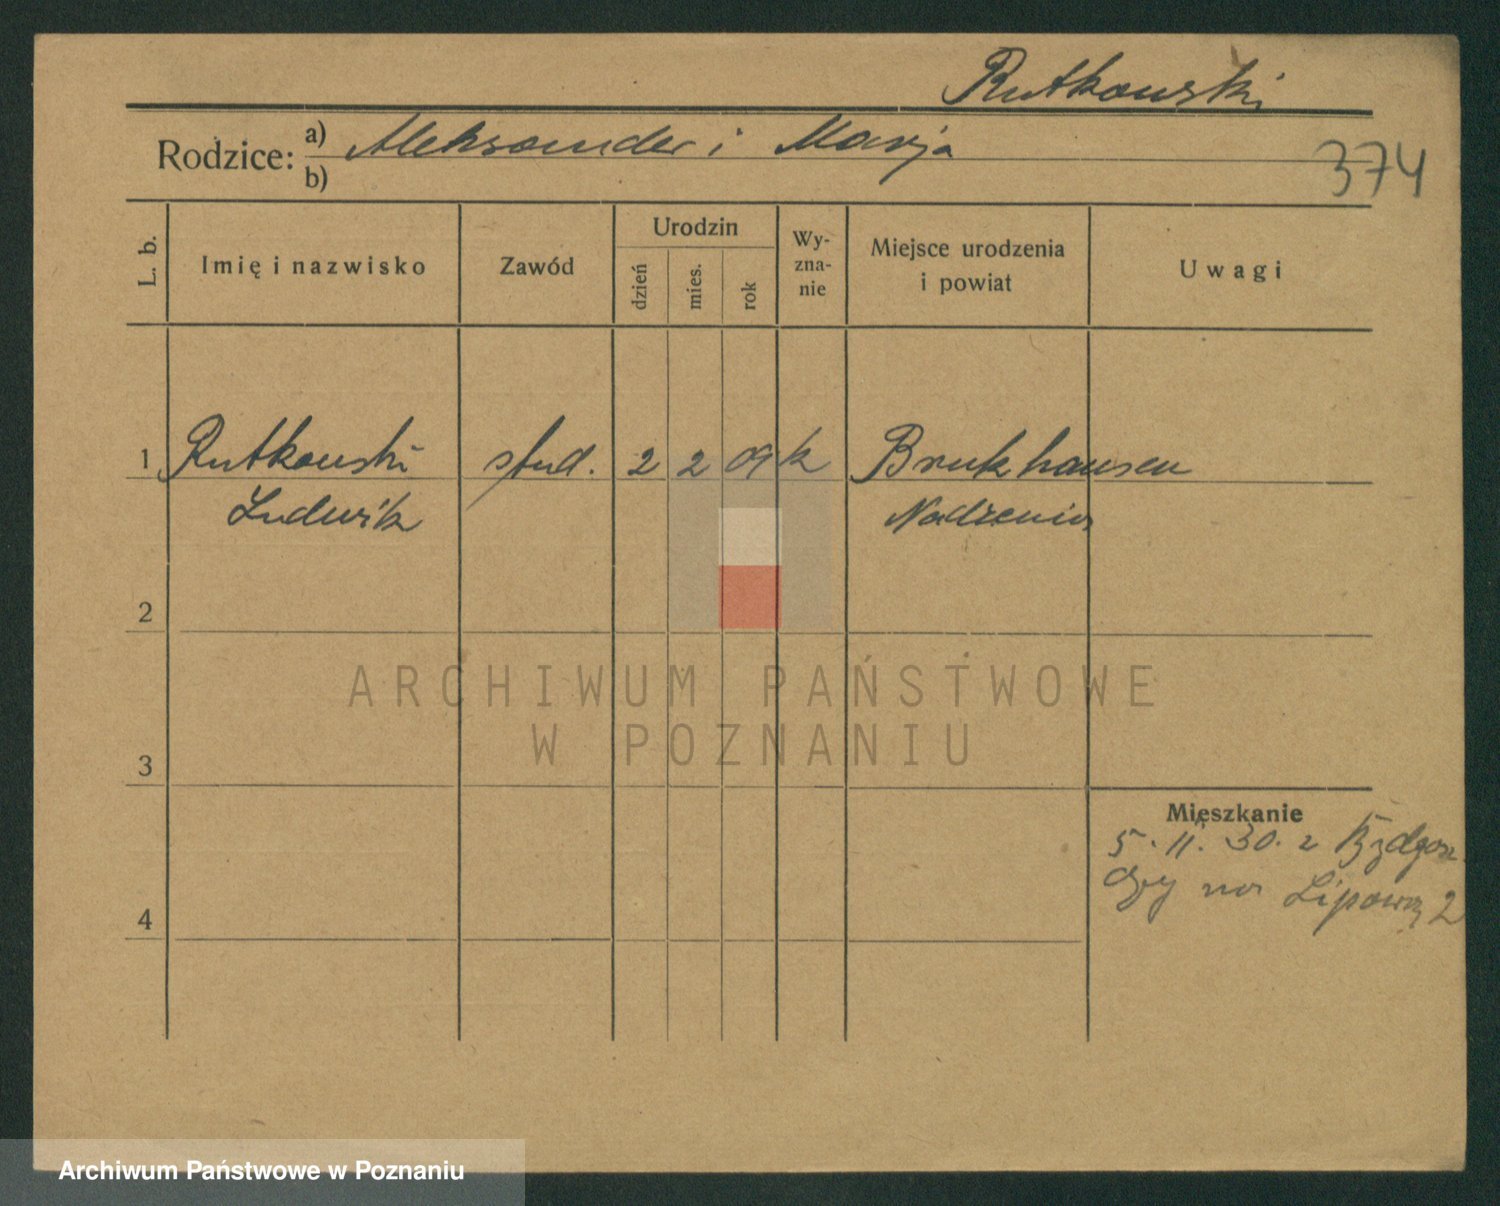 Rutkowski
Rodzice: a) Aleksander i Marja
b)
374
L. b.
Imię i nazwisko
Zawód
Urodzin
dzień
mies.
rok
Wy-
zna-
nie
Miejsce urodzenia
i powiat
Uwagi
1 Rutkowski stud. 2 2 09 k Brukhausen
Ludwik Nadrenia
2
3
4
Mieszkanie
5. 11. 30. z Bydgosz
czy na Lipową 2
ARCHIWUM PAŃSTWOWE
W POZNANIU
Archiwum Państwowe w Poznaniu